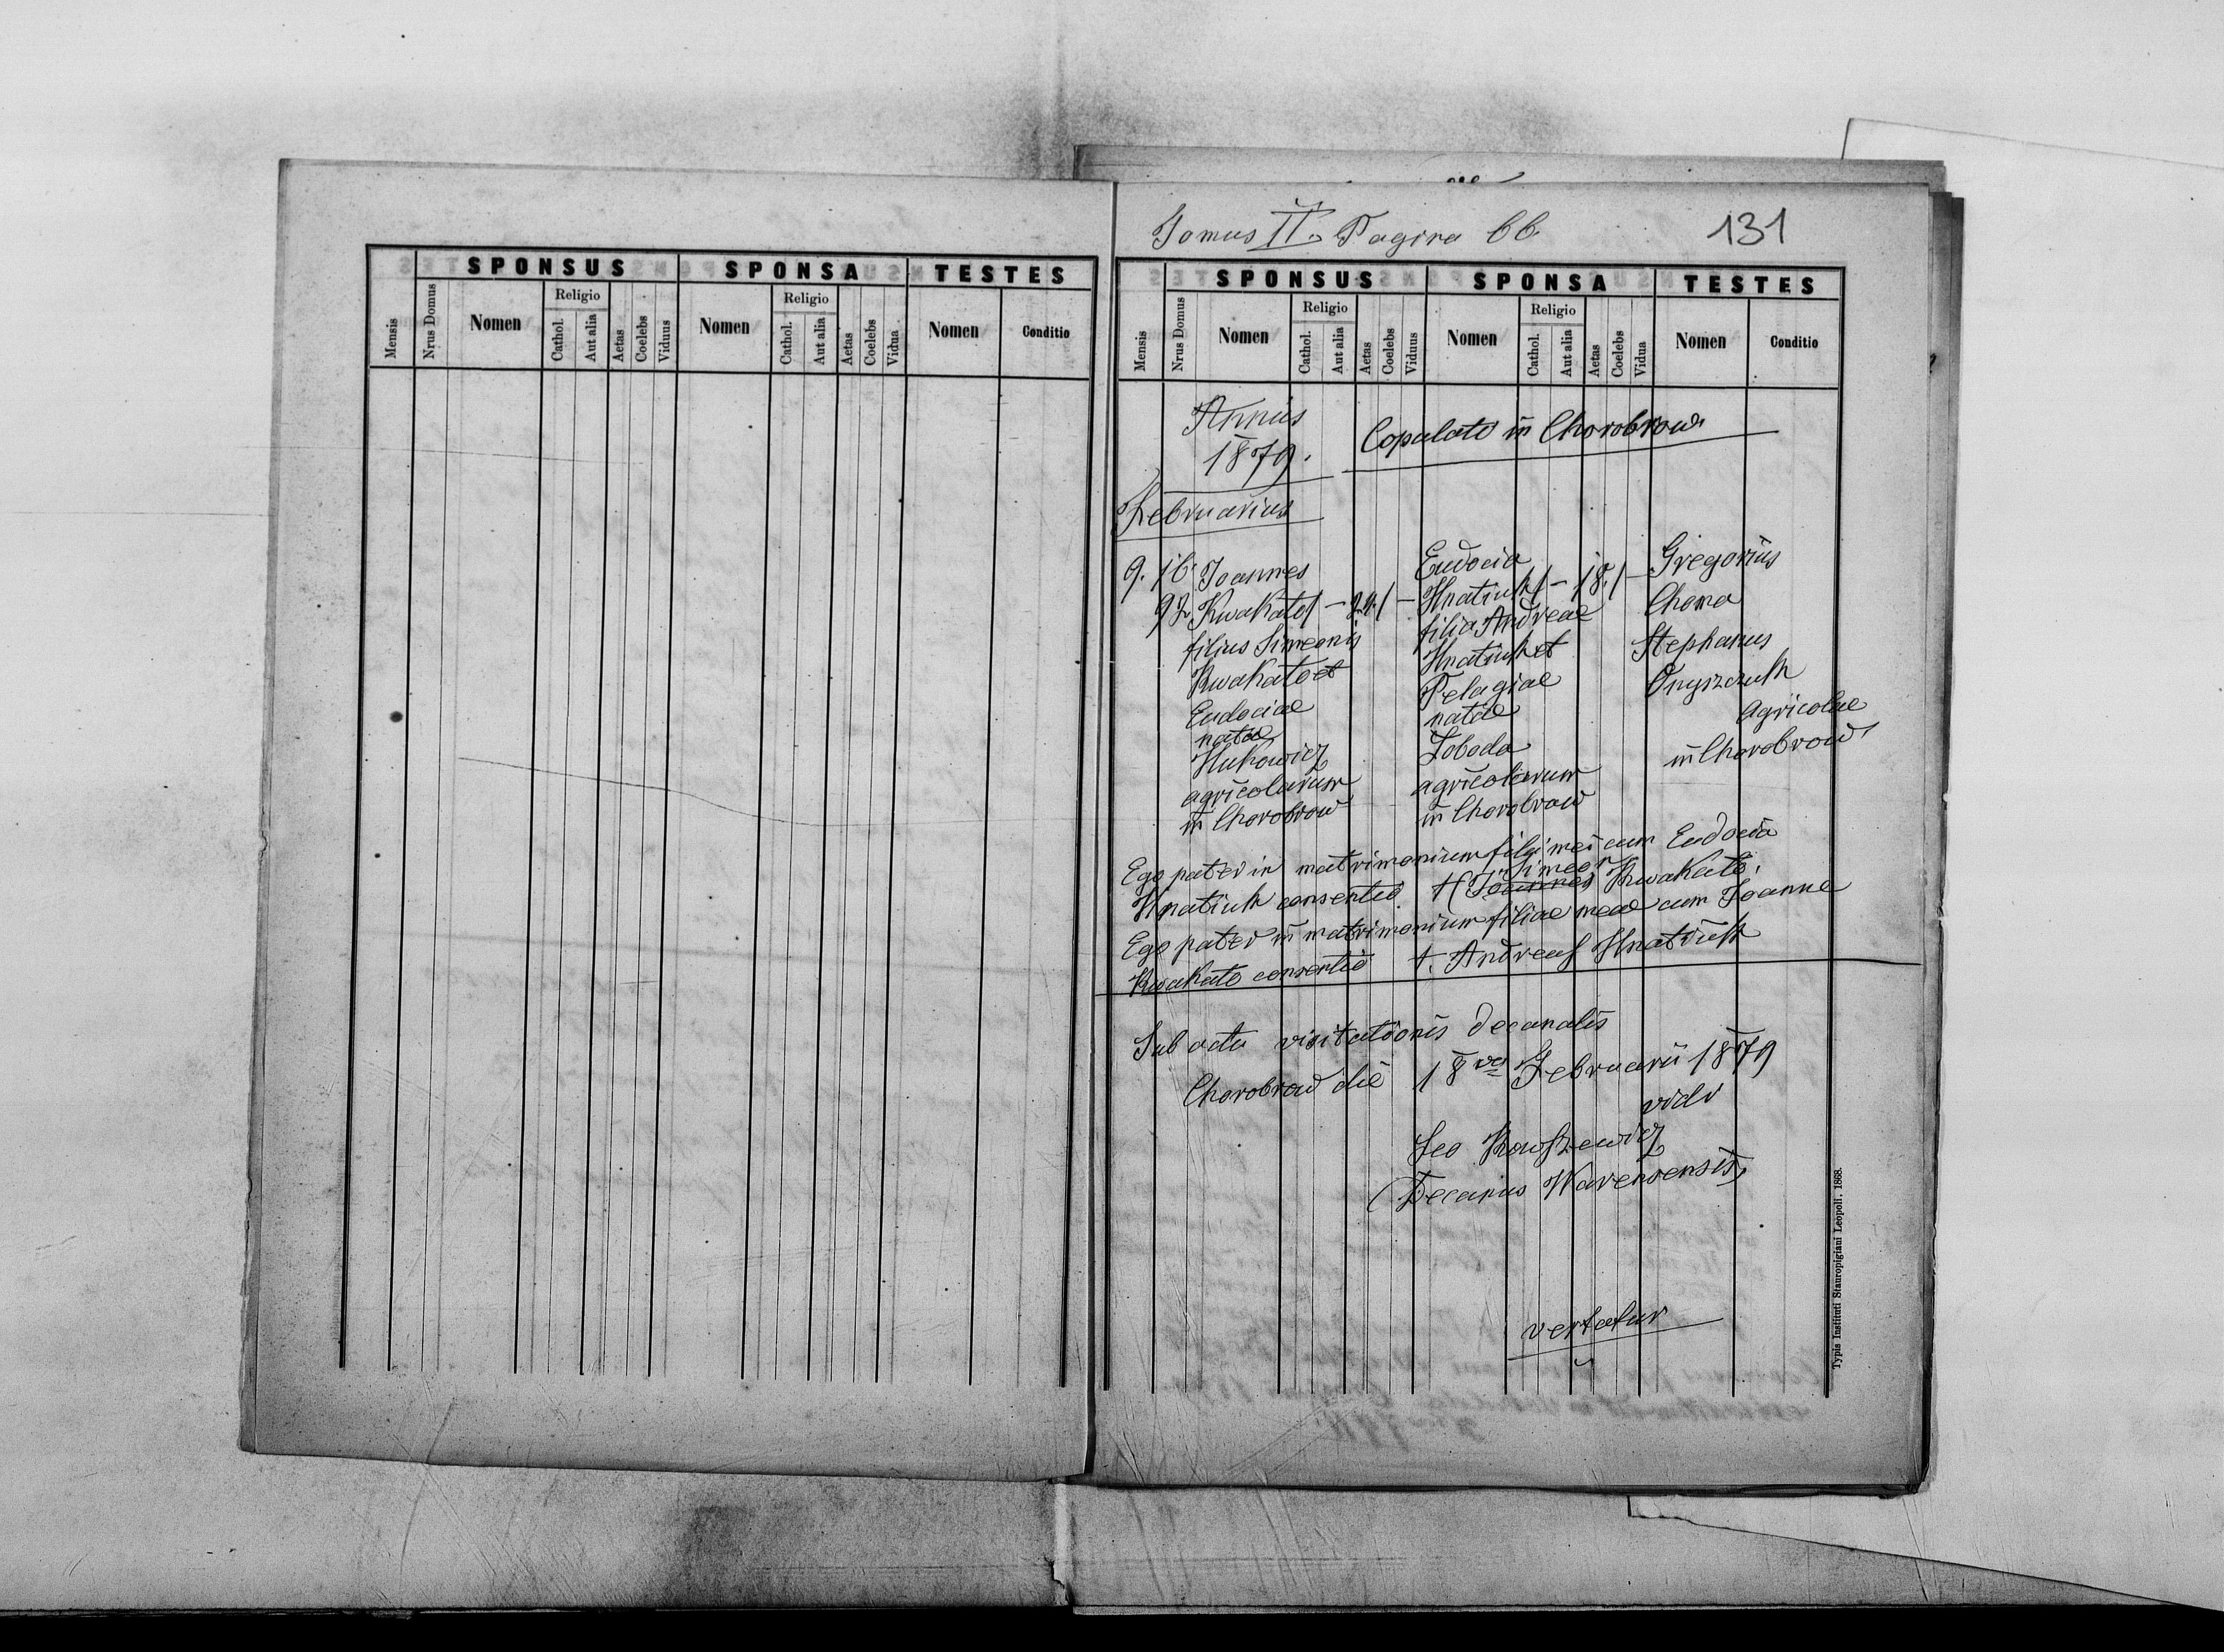 SPONSUS SPONSA TESTES
Mensis Nrus Domus Nomen Religio Cathol. Aut alia Aetas Coelebs Viduus Nomen Religio Cathol. Aut alia Aetas Coelebs Vidua Nomen Conditio
Tomus II. Pagina 66 131
SPONSUS SPONSA TESTES
Mensis Nrus Domus Nomen Religio Cathol. Aut alia Aetas Coelebs Viduus Nomen Religio Cathol. Aut alia Aetas Coelebs Vidua Nomen Conditio
Annus
1879.
Copulati in Chorobrow
Februarius
9. 16. Joannes
92 Kwakato / - 24. / -
filius Simeonis
Kwakato et
Eudociae
natae
Hukowicz
agricolarum
in Chorobrow
Eudocia
Hnatiuk / - 18. / -
filia Andreae
Hnatiuk et
Pelagiae
natae
Loboda
agricolarum
in Chorobrow
Gregorius
Choma
Stephanus
Onyszczuk
agricolae
in Chorobrow
Ego pater in matrimonium filii mei cum Eudocia
Simeon
Hnatiuk consentio + Joannes Kwakato.
Ego pater in matrimonium filiae meae cum Joanne
Kwakato consentio +. Andreas Hnatiuk
Sub actu visitationis decanalis
Chorobrow die 18va Februarii 1879
vidi
Leo
Decanus
vertatur
Typis Instituti Stauropigiani Leopoli. 1868.